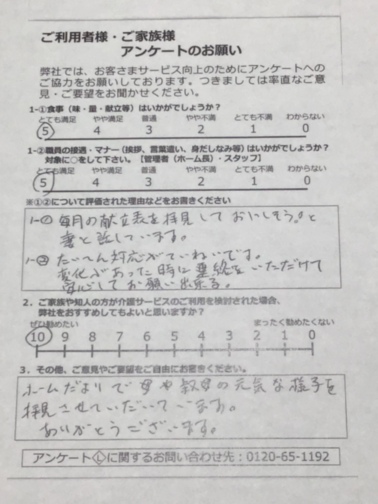 ご利用者様・ご家族様
アンケートのお願い
弊社では、お客さまサービス向上のためにアンケートへの
ご協力をお願いしております。つきましては率直なご意
見・ご要望をお聞かせください。
1-①食事（味・量・献立等）はいかがでしょうか？
とても満足 やや満足 普通 やや不満 とても不満 わからない
5 4 3 2 1 0
1-②職員の接遇・マナー（挨拶、言葉遣い、身だしなみ等）はいかがでしょうか？
対象に○をして下さい。【管理者（ホーム長）・スタッフ】
とても満足 やや満足 普通 やや不満 とても不満 わからない
5 4 3 2 1 0
※①②について評価された理由などをお書きください
1-① 毎月の献立表を拝見しておいしそう。と
妻と話しています。
1-② たいへん対応がていねいです。
変化があった時に連絡をいただけて
安心してお願い出来る。
2．ご家族や知人の方が介護サービスのご利用を検討された場合、
弊社をおすすめしてもよいと思いますか？
ぜひ勧めたい まったく勧めたくない
10 9 8 7 6 5 4 3 2 1 0
3．その他、ご意見やご要望をご自由にお書きください。
ホームだよりで母や叔母の元気な様子を
拝見させていただいています。
ありがとうございます。
アンケートⓁに関するお問い合わせ先：0120-65-1192